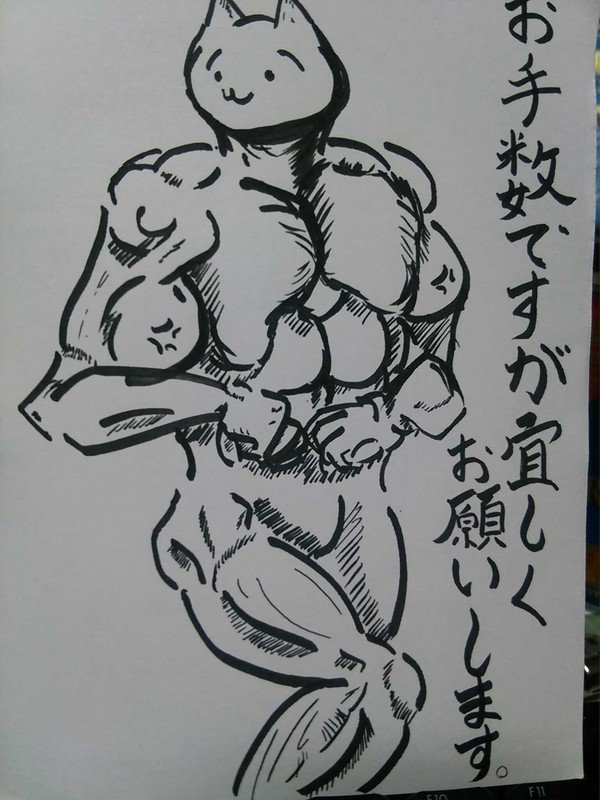 お手数ですが宜しく
お願いします。
F10
F11